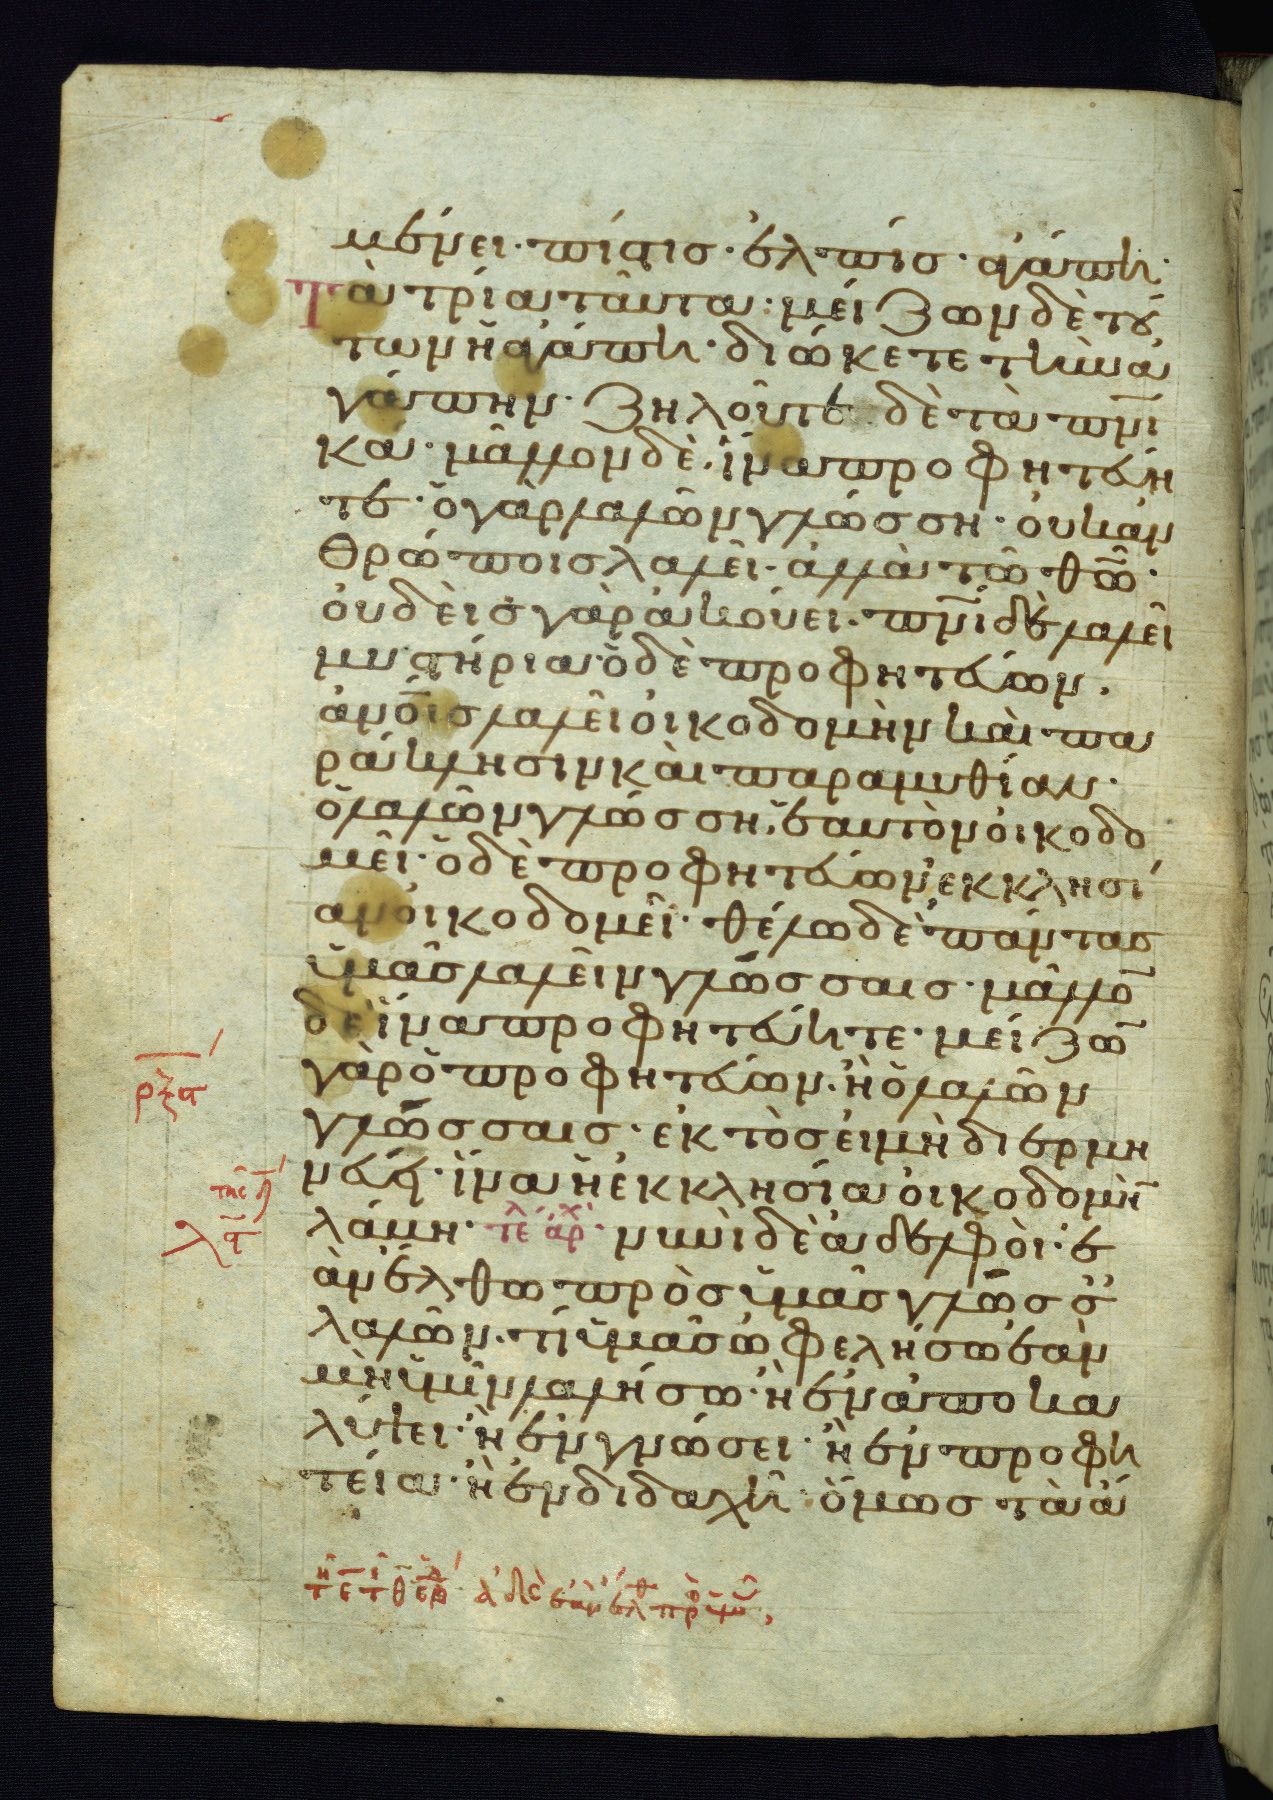 μένει· πίστις· ἐλπίς· ἀγάπη·
Τὰ τρία ταῦτα· μείζων δὲ τού
των ἡ ἀγάπη· διώκετε τὴν ἀ
γάπην· ζηλοῦτε δὲ τὰ πν̅ι
κά· μᾶλλον δὲ, ἵνα προφητεύη
τε· ὁ γὰρ λαλῶν γλώσση· οὐκ ἀν
θρώποις λαλεῖ· ἀλλὰ τῶ θ̅ω̅·
οὐδεὶς γὰρ ἀκούει· πν̅ι δὲ λαλεῖ
μυστήρια· ὁ δὲ προφητεύων.
ἀν̅ο̅ι̅ς λαλεῖ οἰκοδομὴν καὶ πα
ράκλησιν καὶ παραμυθίαν·
ὁ λαλῶν γλώσση, ἑαυτὸν οἰκοδο
μεῖ· ὁ δὲ προφητεύων, ἐκκλησί
αν οἰκοδομεῖ· θέλω δὲ πάντας
ὑμᾶς λαλεῖν γλώσσαις· μᾶλλο̅
δὲ ἵνα προφητεύητε· μείζω̅
γὰρ ὁ προφητεύων. ἢ ὁ λαλῶν
ρξα
γλώσσαις· ἐκτὸς εἰ μὴ διερμη
νεύει· ἵνα ἡ ἐκκλησία οἰκοδομὴ̅
λάβη· τε αρ νυνὶ δὲ ἀδελφοὶ· ἐ
ὰν ἔλθω πρὸς ὑμᾶς γλώσσ
λαλῶν. τί ὑμᾶς ὠφελήσω ἐὰν
μὴ ὑμῖν λαλήσω· ἢ ἐν ἀποκα
λύψει· ἢ ἐν γνώσει· ἢ ἐν προφη
τεία· ἢ ἐν διδαχῆ· ὅμως τὰ ἄ